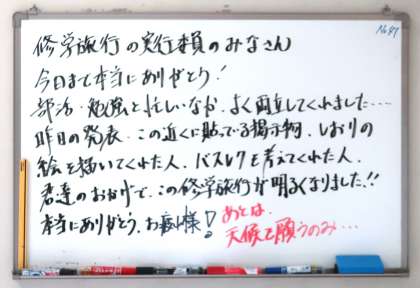 No.47
修学旅行の実行委員のみなさん
今日まで本当にありがとう!
部活・勉強と忙しいなか、よく両立してくれました....
昨日の発表、この近くに貼ってる掲示物、しおりの
絵を描いてくれた人、バスレクを考えてくれた人、
君達のおかげで、この修学旅行が明るくなりました!!
本当にありがとう、お疲れ様!
あとは、
天候を願うのみ...